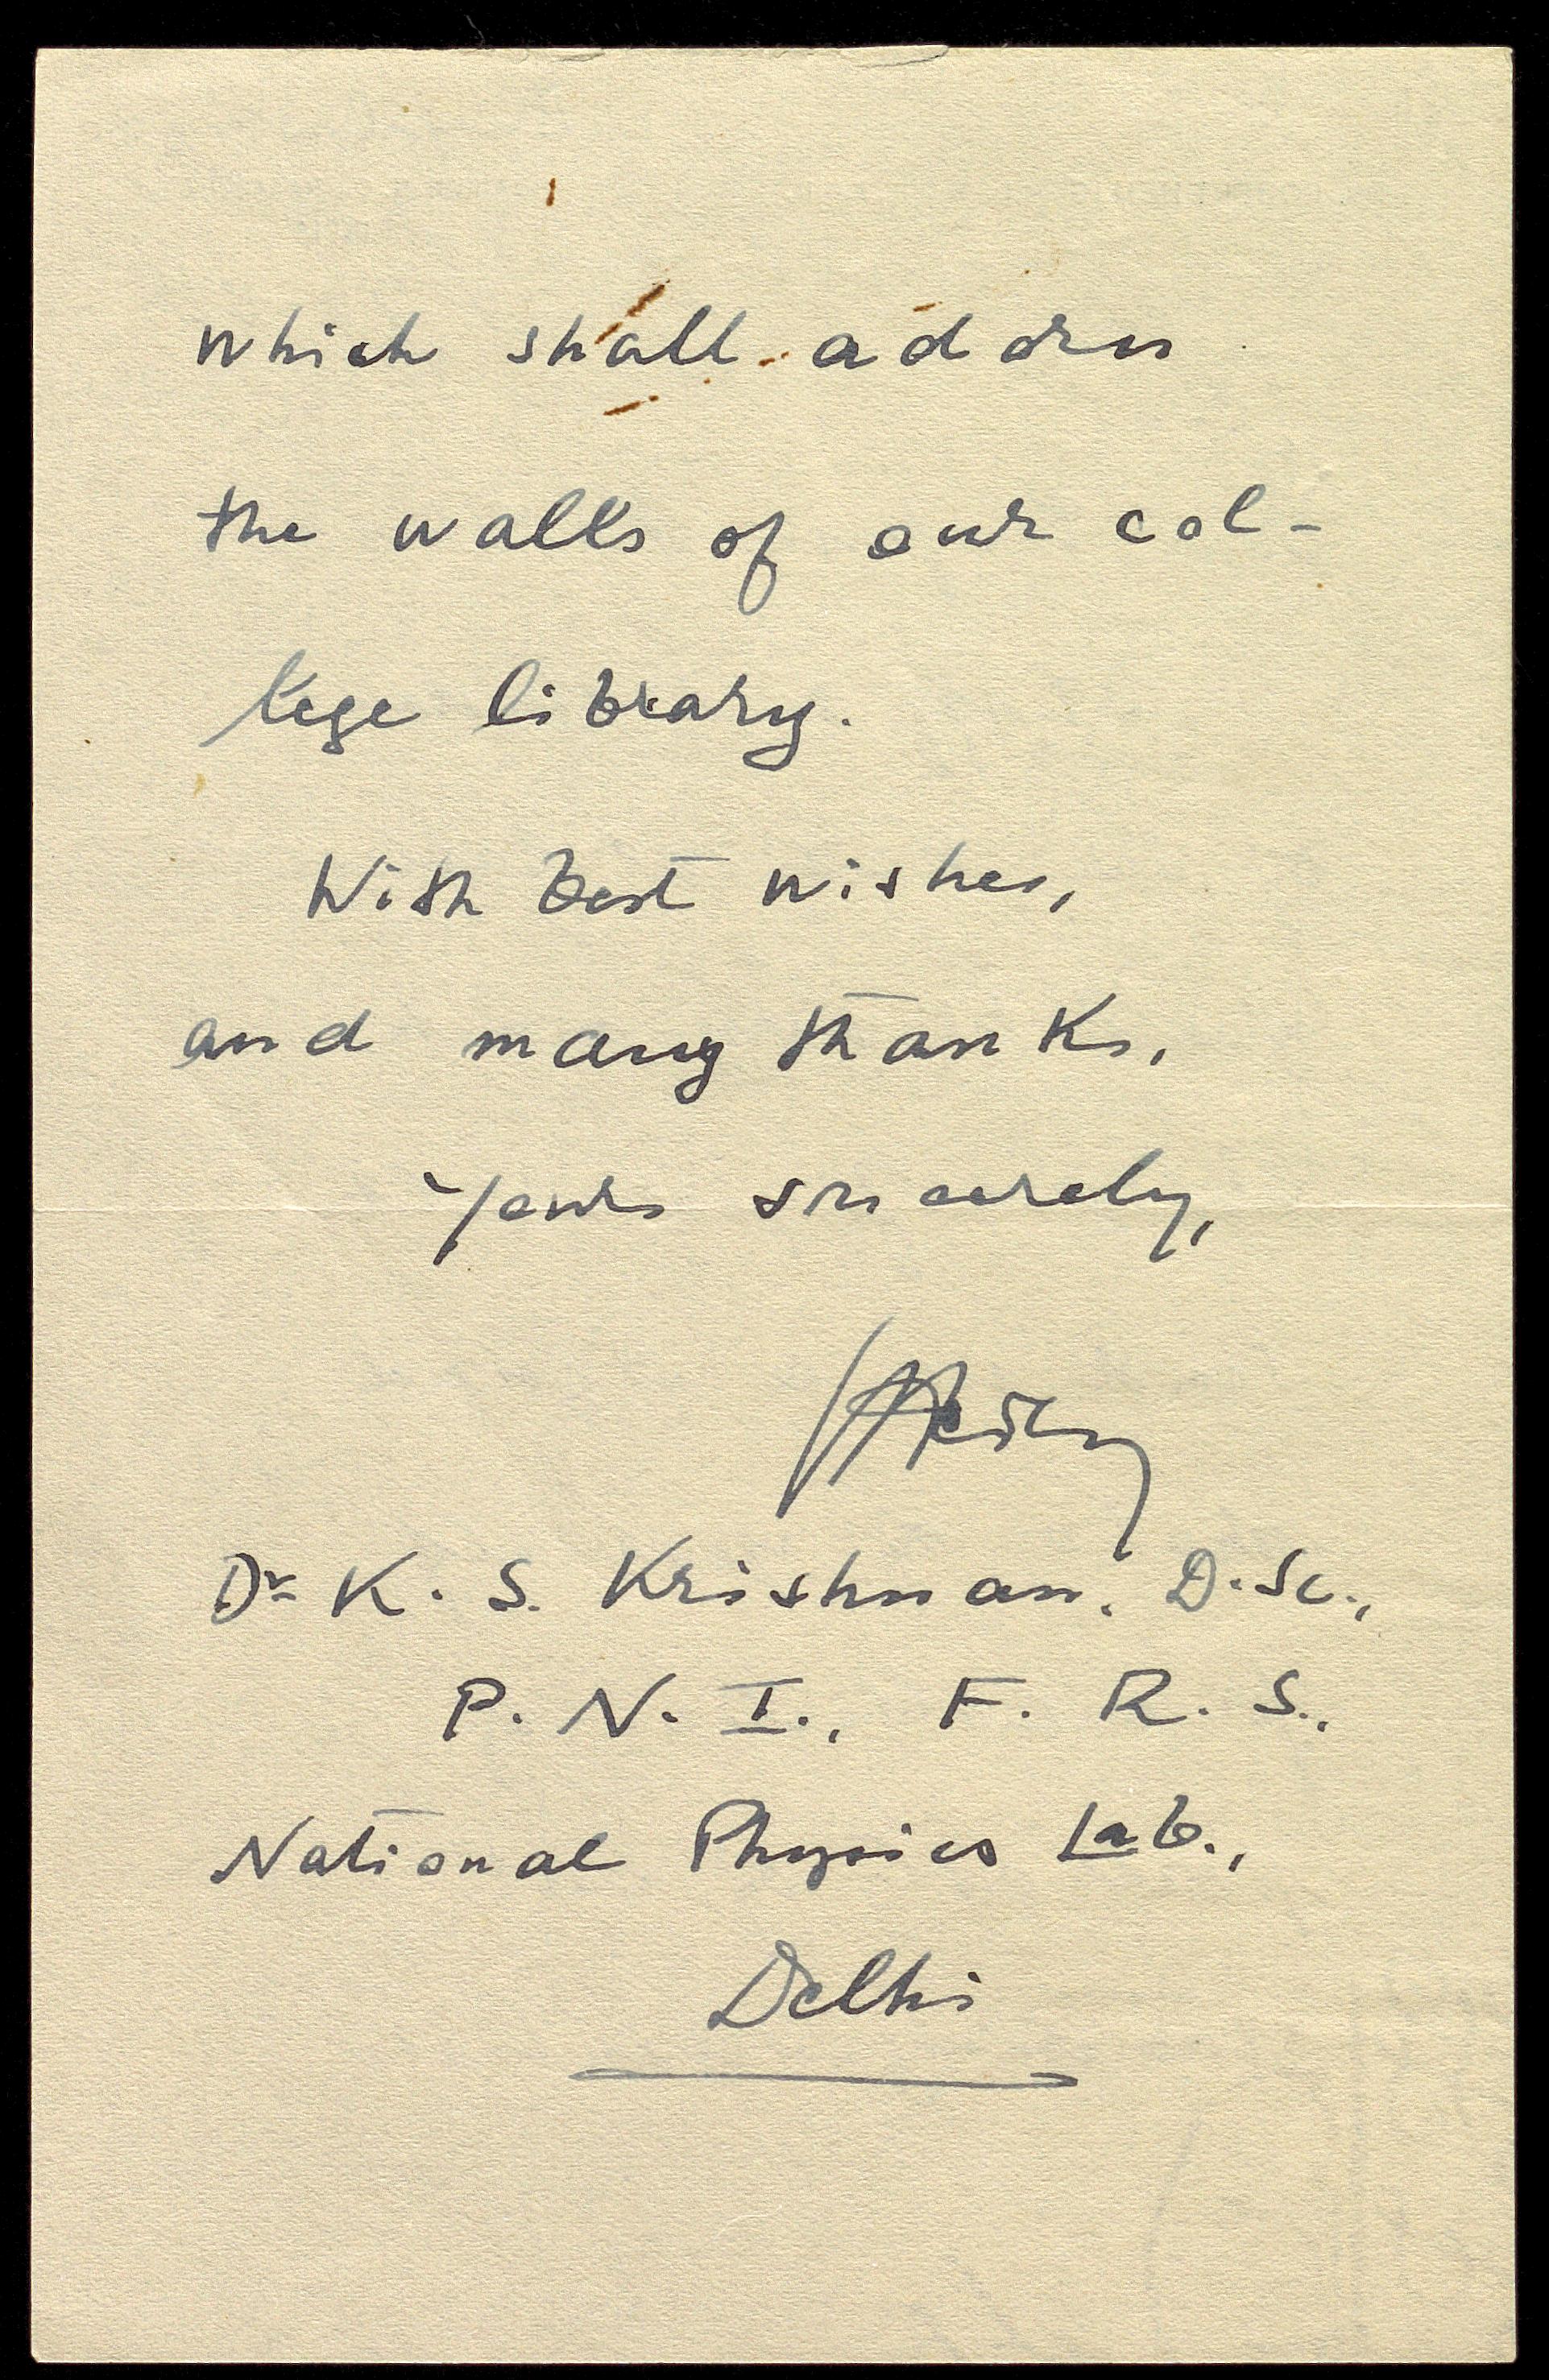 which shall adorn
the walls of our col-
lege library.
With best wishes,
and many thanks,
Yours sincerely,
Dr K. S. Krishnan, D.Sc.,
P. N. I., F. R. S.,
National Physics Lab.,
Delhi